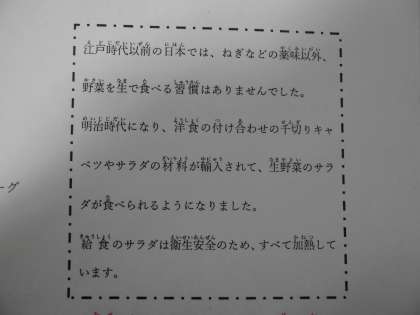 江戸時代以前の日本では、ねぎなどの薬味以外、
野菜を生で食べる習慣はありませんでした。
明治時代になり、洋食の付け合わせの千切りキャ
ベツやサラダの材料が輸入されて、生野菜のサラ
ダが食べられるようになりました。
給食のサラダは衛生安全のため、すべて加熱して
います。
ーグ